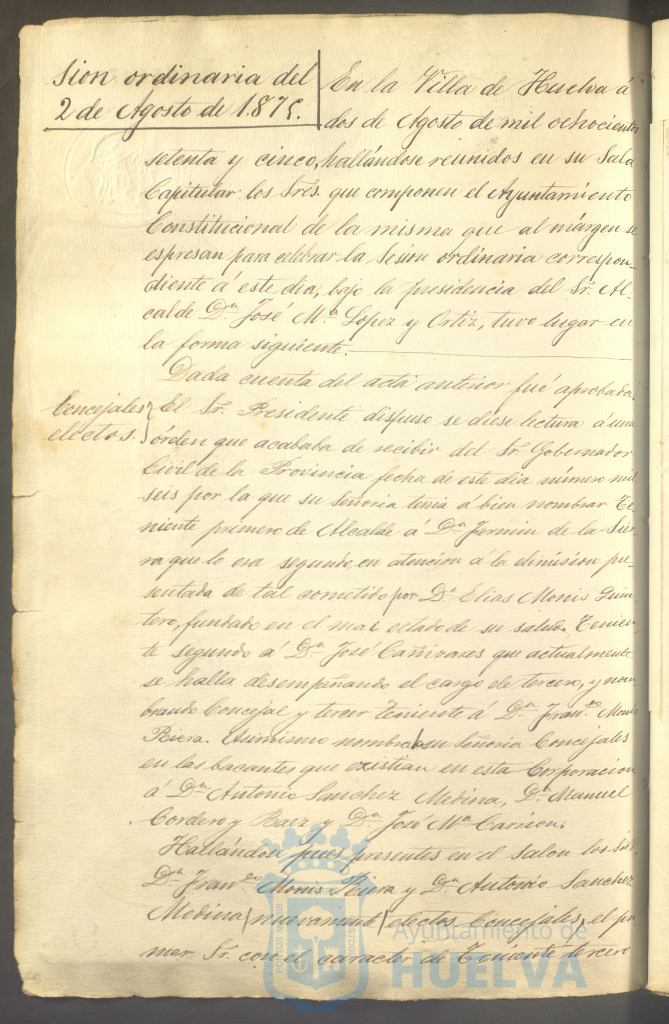 sion ordinaria del
2 de Agosto de 1875.
En la Villa de Huelva á
dos de Agosto de mil ochocientos
setenta y cinco, hallándose reunidos en su Sala
Capitular los Sres. que componen el Ayuntamiento
Constitucional de la misma que al márgen se
espresan para celebrar la Sesion ordinaria correspon-
diente á este dia, bajo la presidencia del Sr. Al-
calde Dn. José Mª Lopez y Ortiz, tuvo lugar en
la forma siguiente.
Dada cuenta del acta anterior fué aprobada.
Concejales
electos.
El Sr. Presidente dispuso se diese lectura á una
órden que acababa de recibir del Sr. Gobernador
Civil de la Provincia fecha de este dia número mil
seis por la que su Señoria tenia á bien nombrar Te-
niente primero de Alcalde á Dn. Fermin de la Sier-
ra que lo era segundo, en atencion á la dimision pre-
sentada de tal cometido por Dn. Elias Monis Quin-
tero, fundado en el mal estado de su salud. Tenien-
te segundo á Dn. José Cañizares que actualmente
se halla desempeñando el cargo de tercero, y nom-
brando Concejal y tercer Teniente á Dn. Franco. Monis
Riera. Asimismo nombraba su Señoria Concejales
en las bacantes que existian en esta Corporacion
á Dn. Antonio Sanchez Medina, Dn. Manuel
Cordero y Baez y Dn. José Mª Carrion.
Hallándose pues presentes en el Salon los Sres.
Dn. Franco. Monis Riera y Dn. Antonio Sanchez
Medina (nuevamente) electos Concejales, el pri-
mer Sr. con el caracter de Teniente tercero
Ayuntamiento de
HUELVA